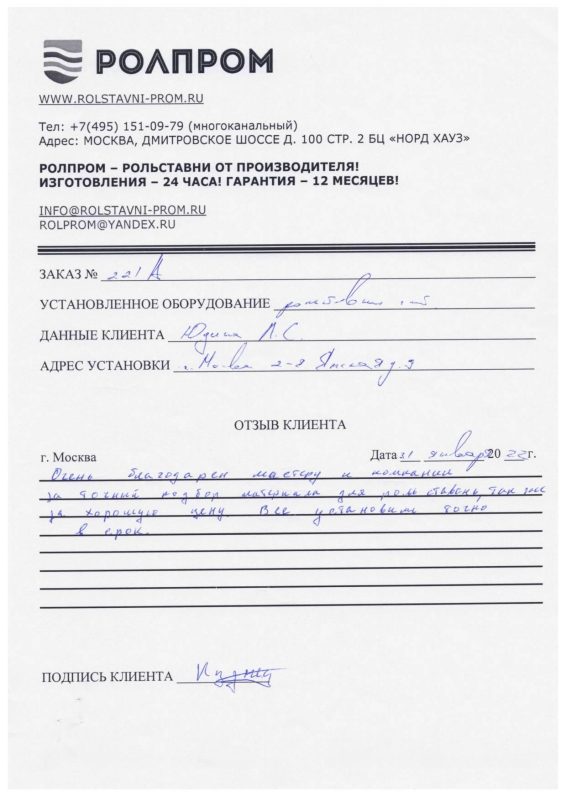 РОЛПРОМ
WWW.ROLSTAVNI-PROM.RU
Тел: +7(495) 151-09-79 (многоканальный)
Адрес: МОСКВА, ДМИТРОВСКОЕ ШОССЕ Д. 100 СТР. 2 БЦ «НОРД ХАУЗ»
РОЛПРОМ – РОЛЬСТАВНИ ОТ ПРОИЗВОДИТЕЛЯ!
ИЗГОТОВЛЕНИЯ – 24 ЧАСА! ГАРАНТИЯ – 12 МЕСЯЦЕВ!
INFO@ROLSTAVNI-PROM.RU
ROLPROM@YANDEX.RU
ЗАКАЗ № 221 А
УСТАНОВЛЕННОЕ ОБОРУДОВАНИЕ рольставни
ДАННЫЕ КЛИЕНТА Юдина
АДРЕС УСТАНОВКИ г. Москва 2-я д. 9
ОТЗЫВ КЛИЕНТА
г. Москва Дата 31 января 2023г.
Очень благодарен мастеру и компании
за точный подбор материала для рольставень, так же
за хорошую цену. Все установили точно
в срок.
ПОДПИСЬ КЛИЕНТА